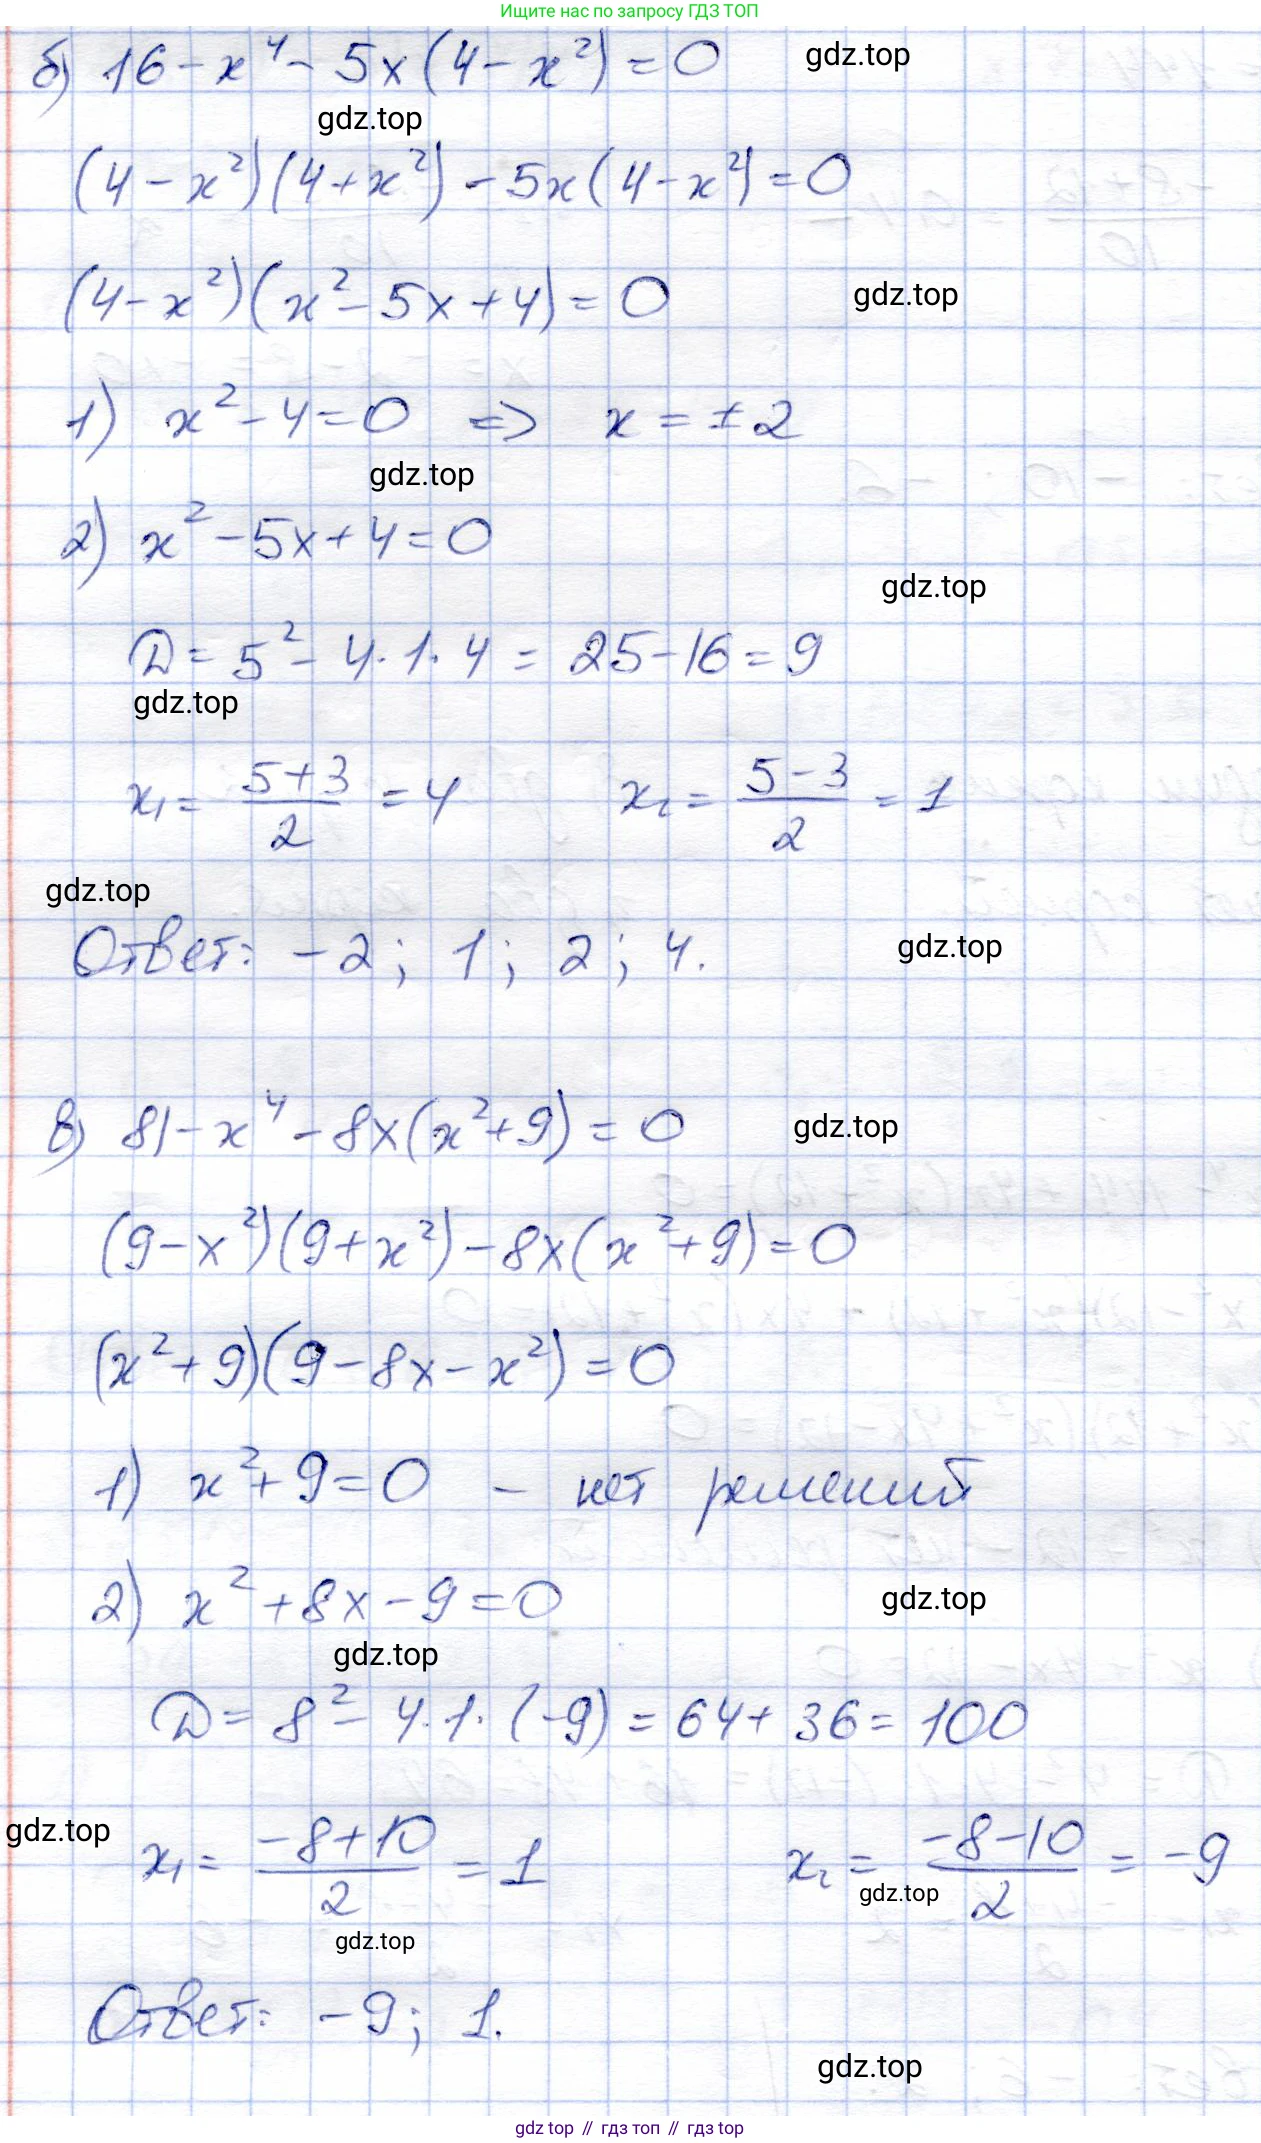 Ищите нас по запросу ГДЗ ТОП
б) 16 - x⁴ - 5x(4 - x²) = 0 gdz.top
gdz.top
(4 - x²)(4 + x²) - 5x(4 - x²) = 0
(4 - x²)(x² - 5x + 4) = 0 gdz.top
1) x² - 4 = 0 => x = ±2
gdz.top
2) x² - 5x + 4 = 0
gdz.top
D = 5² - 4·1·4 = 25 - 16 = 9
gdz.top
x₁ = (5+3)/2 = 4 x₂ = (5-3)/2 = 1
gdz.top
Ответ: -2; 1; 2; 4. gdz.top
в) 81 - x⁴ - 8x(x² + 9) = 0 gdz.top
(9 - x²)(9 + x²) - 8x(x² + 9) = 0
(x² + 9)(9 - 8x - x²) = 0
1) x² + 9 = 0 - нет решений
2) x² + 8x - 9 = 0 gdz.top
gdz.top
D = 8² - 4·1·(-9) = 64 + 36 = 100
gdz.top x₁ = (-8+10)/2 = 1 x₂ = (-8-10)/2 = -9
gdz.top
gdz.top
Ответ: -9; 1.
gdz.top
gdz top // гдз топ // gdz top